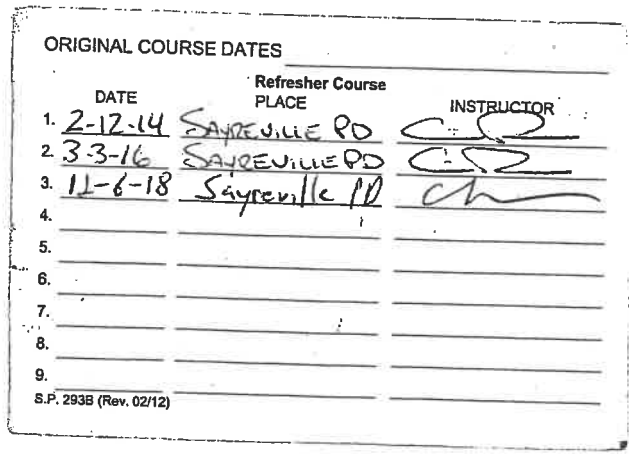 ORIGINAL COURSE DATES
Refresher Course
DATE PLACE INSTRUCTOR
1. 2-12-14 SAYREVILLE PD
2. 3-3-16 SAYREVILLE PD
3. 11-6-18 Sayreville PD
4.
5.
6.
7.
8.
9.
S.P. 293B (Rev. 02/12)